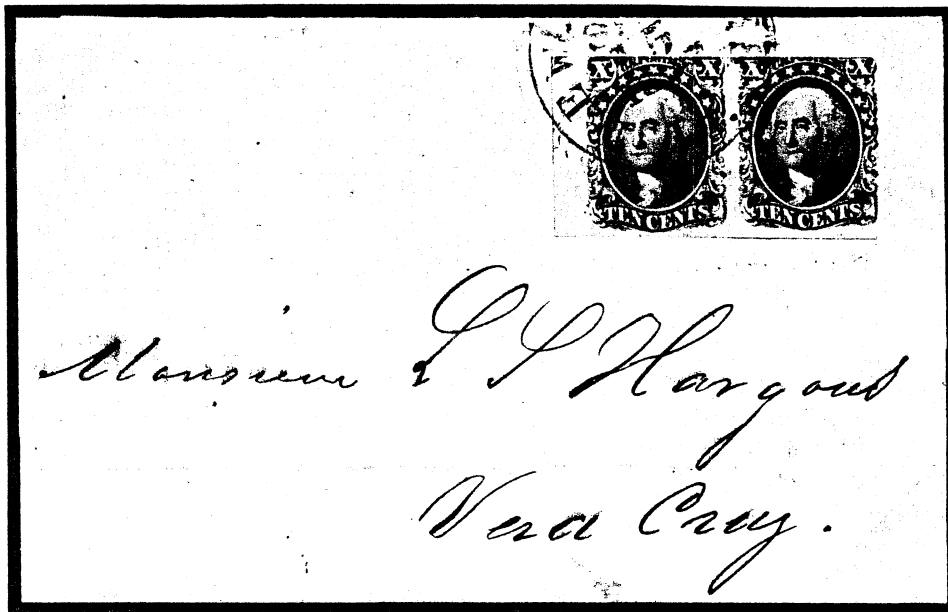 X X X X
TEN CENTS TEN CENTS
Monsieur L S Hargous
Vera Cruz.